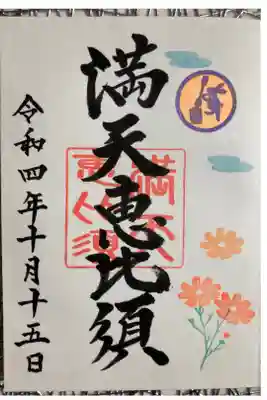 満天恵比須
令和四年十月十五日
満天
恵比須